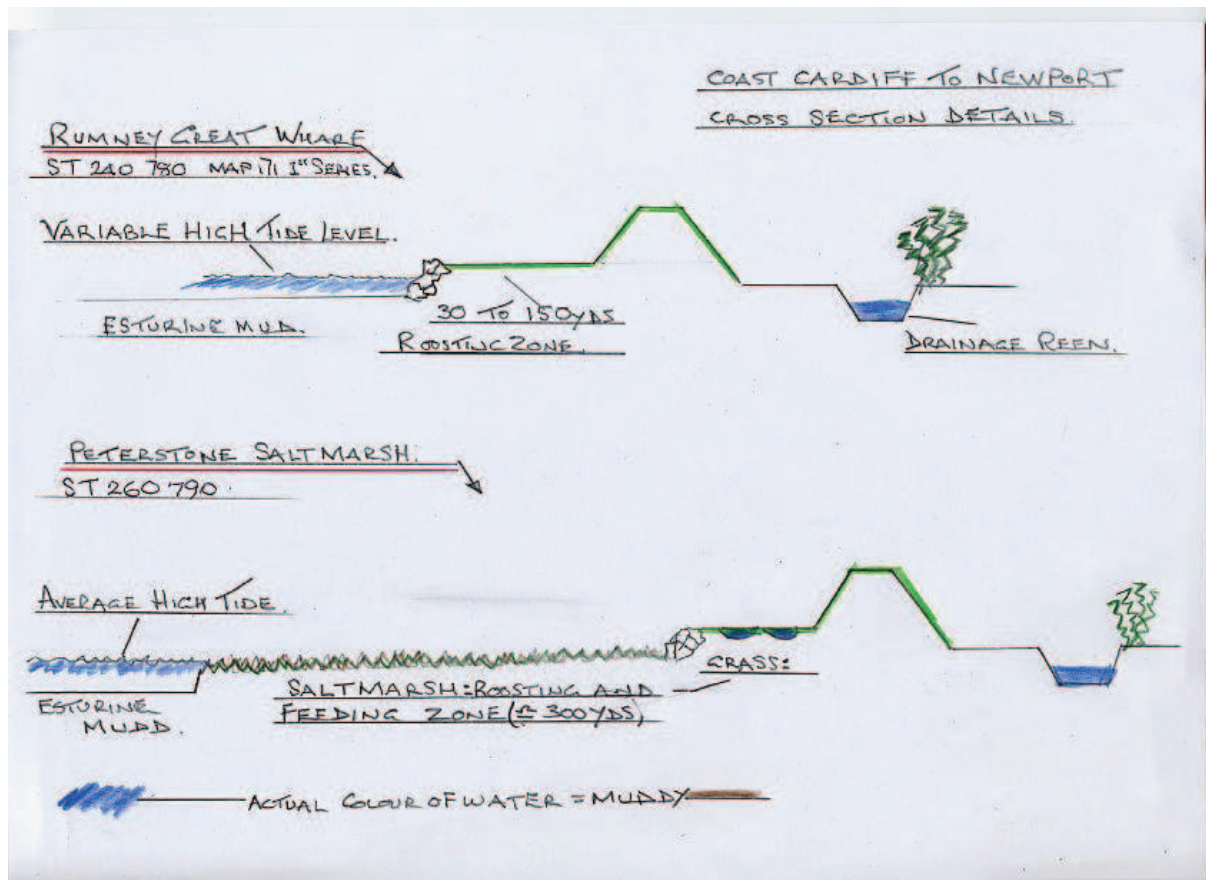 COAST CARDIFF TO NEWPORT
CROSS SECTION DETAILS.
RUMNEY GREAT WHARF
ST 240 780 MAP 171 1" SERIES.
VARIABLE HIGH TIDE LEVEL.
ESTURINE MUD.
30 TO 150YDS
ROOSTING ZONE.
DRAINAGE REEN.
PETERSTONE SALTMARSH.
ST 260 790.
AVERAGE HIGH TIDE.
ESTURINE
MUDD.
GRASS:
SALTMARSH:ROOSTING AND
FEEDING ZONE (≏ 300YDS)
ACTUAL COLOUR OF WATER = MUDDY